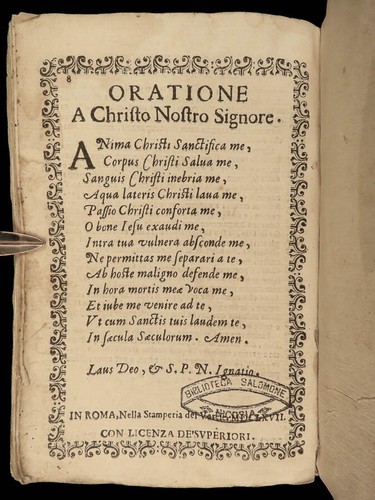 8
ORATIONE
A Chriſto Noſtro Signore.
ANima Chriſti Sanctifica me,
Corpus Chriſti Salua me,
Sanguis Chriſti inebria me,
Aqua lateris Chriſti laua me,
Paſſio Chriſti conforta me,
O bone Ieſu exaudi me,
Intra tua vulnera abſconde me,
Ne permittas me ſeparari a te,
Ab hoſte maligno defende me,
In hora mortis meæ voca me,
Et iube me venire ad te,
Vt cum Sanctis tuis laudem te,
In ſæcula Sæculorum. Amen.
Laus Deo, & S. P. N. Ignatio.
BIBLIOTECA SALOMONE
NICOSIA
IN ROMA, Nella Stamperia del
CON LICENZA DE'SVPERIORI.